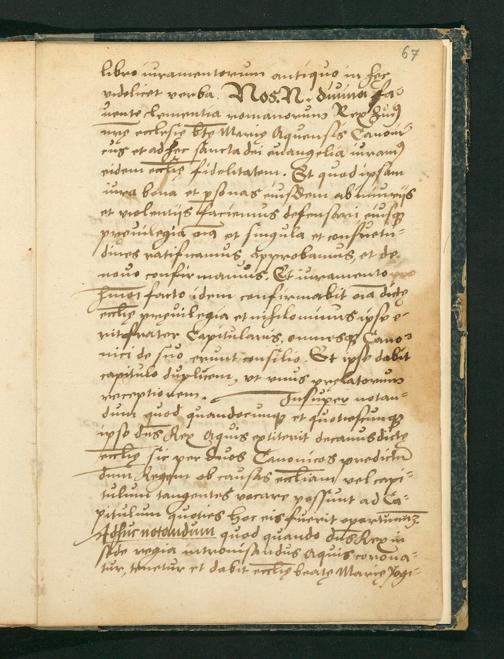 67
libro iuramentorum antiquo in hec
videlicet verba. Nos. N. diuina fa⸗
uente clementia romanorum Rex huiꝰ
ecclesie bte Marie Aquensis Canoni⸗
cus et ad hec sancta dei euangelia iuramꝰ
eidem ecclie fidelitatem. Et quod ipsam
iura bona et psonas eiusdem ab iniurijs
et violentijs faciemus defensari eiusqꝫ
preuilegia oia et singula et consuetu⸗
dines ratificamus, approbamus, et de
nouo confirmamus. Et iuramento
hmoi facto idem confirmabit oia dicte
ecclie preuilegia et nihilominus ipse e⸗
rit frater Capitularis, omnesqꝫ Cano⸗
nici de suo erunt consilio. Et ipse dabit
capitulo duplicem, vt vnus prelatorum
receptionem. Insuper notan⸗
dum quod quandocunqꝫ et quotiescunqꝫ
ipse dns Rex Aquis extiterit decanus dicte
ecclie sic per duos Canonicos predictū
dum Regem ob causas eccliam vel capi⸗
tulum tangentes vocare possunt ad Ca⸗
pitulum quoties hoc eis fuerit oportunū
Adhuc notandum quod quando dns Rex in
sede regia intronisandus Aquis corona⸗
tur, tenetur et dabit ecclie beate Marie